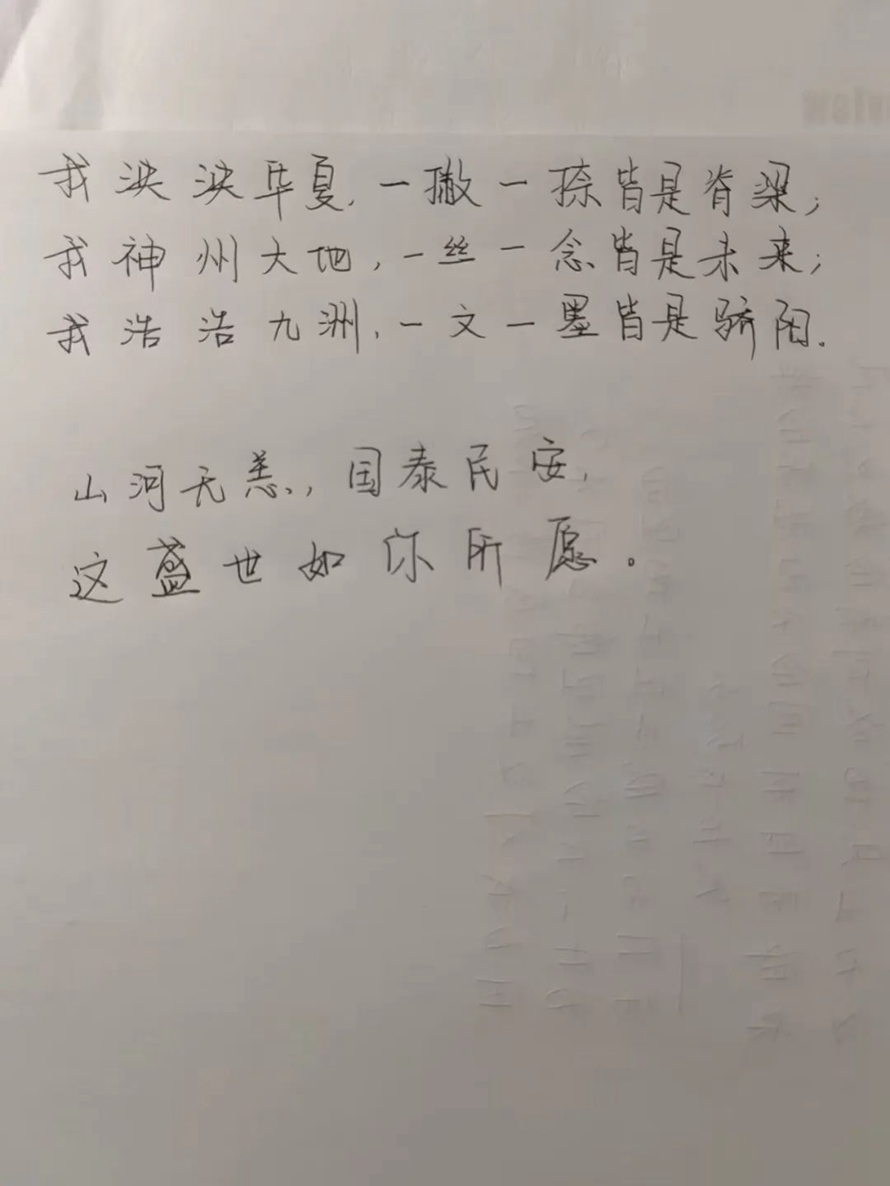 我泱泱华夏,一撇一捺皆是脊梁;
我神州大地,一丝一念皆是未来;
我浩浩九洲,一文一墨皆是骄阳.
山河无恙,国泰民安,
这盛世如你所愿。